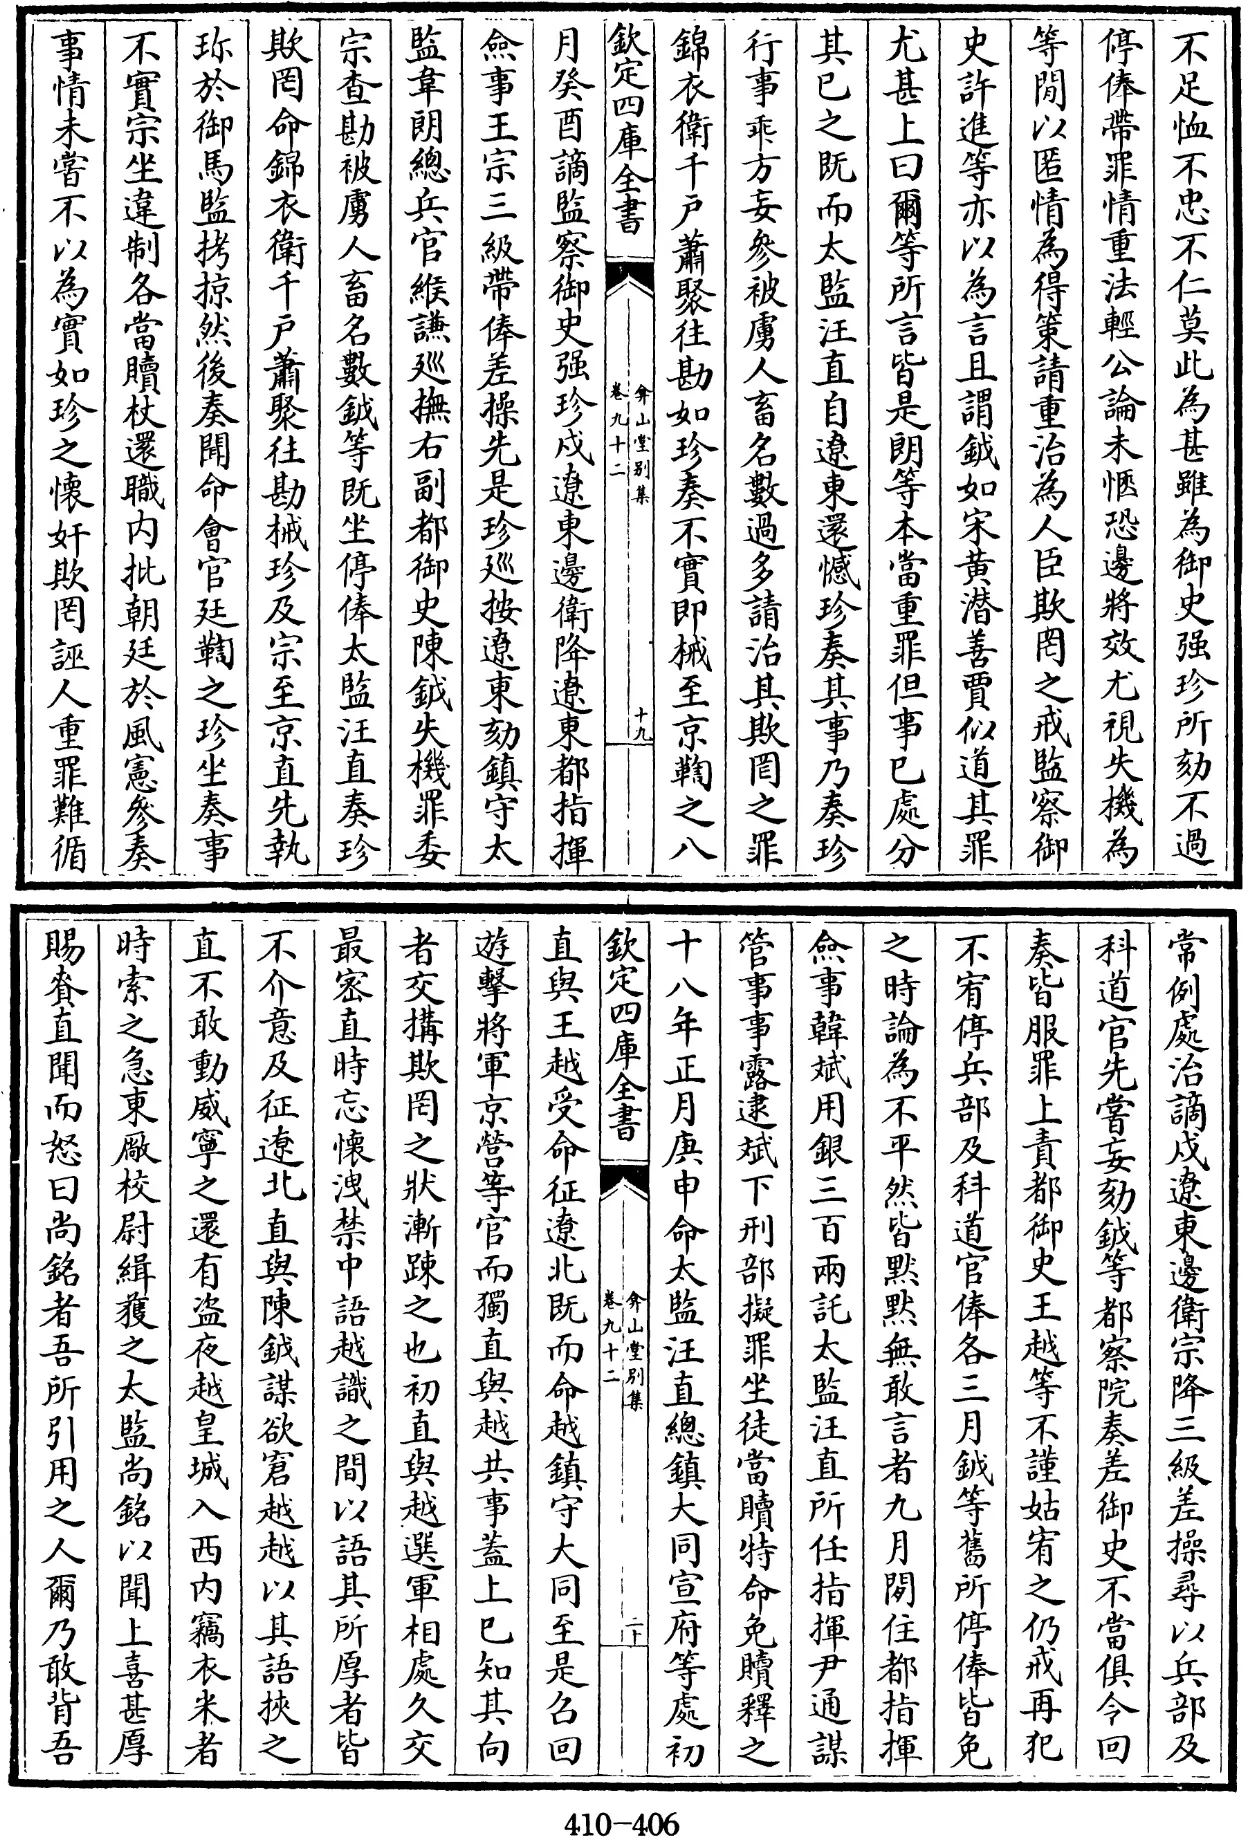 不足恤不忠不仁莫此為甚雖為御史强珍所劾不過
停俸帶罪情重法輕公論未愜恐邊將效尤視失機為
等閒以匿情為得策請重治為人臣欺罔之戒監察御
史許進等亦以為言且謂鉞如宋黄潜善賈似道其罪
尤甚上曰爾等所言皆是朗等本當重罪但事已處分
其已之既而太監汪直自遼東還憾珍奏其事乃奏珍
行事乖方妄參被虜人畜名數過多請治其欺罔之罪
錦衣衛千戶蕭聚往勘如珍奏不實即械至京鞫之八
欽定四庫全書
弇山堂别集
卷九十二
十九
月癸酉謫監察御史强珍戍遼東邊衛降遼東都指揮
僉事王宗三級帶俸差操先是珍廵按遼東劾鎮守太
監韋朗總兵官緱謙廵撫右副都御史陳鉞失機罪委
宗查勘被虜人畜名數鉞等既坐停俸太監汪直奏珍
欺罔命錦衣衛千戶蕭聚往勘械珍及宗至京直先執
珍於御馬監拷掠然後奏聞命會官廷鞫之珍坐奏事
不實宗坐違制各當贖杖還職内批朝廷於風憲參奏
事情未嘗不以為實如珍之懷奸欺罔誣人重罪難循
常例處治謫戍遼東邊衛宗降三級差操尋以兵部及
科道官先嘗妄劾鉞等都察院奏差御史不當俱令回
奏皆服罪上責都御史王越等不謹姑宥之仍戒再犯
不宥停兵部及科道官俸各三月鉞等舊所停俸皆免
之時論為不平然皆默默無敢言者九月閒住都指揮
僉事韓斌用銀三百兩託太監汪直所任指揮尹通謀
管事事露逮斌下刑部擬罪坐徒當贖特命免贖釋之
十八年正月庚申命太監汪直總鎮大同宣府等處初
欽定四庫全書
弇山堂别集
卷九十二
二十
直與王越受命征遼北既而命越鎮守大同至是召回
遊擊將軍京營等官而獨直與越共事蓋上已知其向
者交搆欺罔之狀漸踈之也初直與越選軍相處久交
最密直時忘懷洩禁中語越識之間以語其所厚者皆
不介意及征遼北直與陳鉞謀欲窘越越以其語挾之
直不敢動威寧之還有盗夜越皇城入西内竊衣米者
時索之急東廠校尉緝獲之太監尚銘以聞上喜甚厚
賜賚直聞而怒曰尚銘者吾所引用之人爾乃敢背吾
410-406